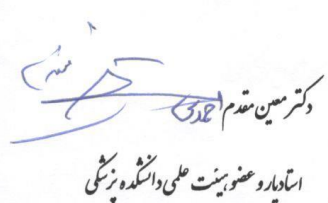 دکتر معین مقدم احمدی
استادیار و عضو هیئت علمی دانشکده پزشکی